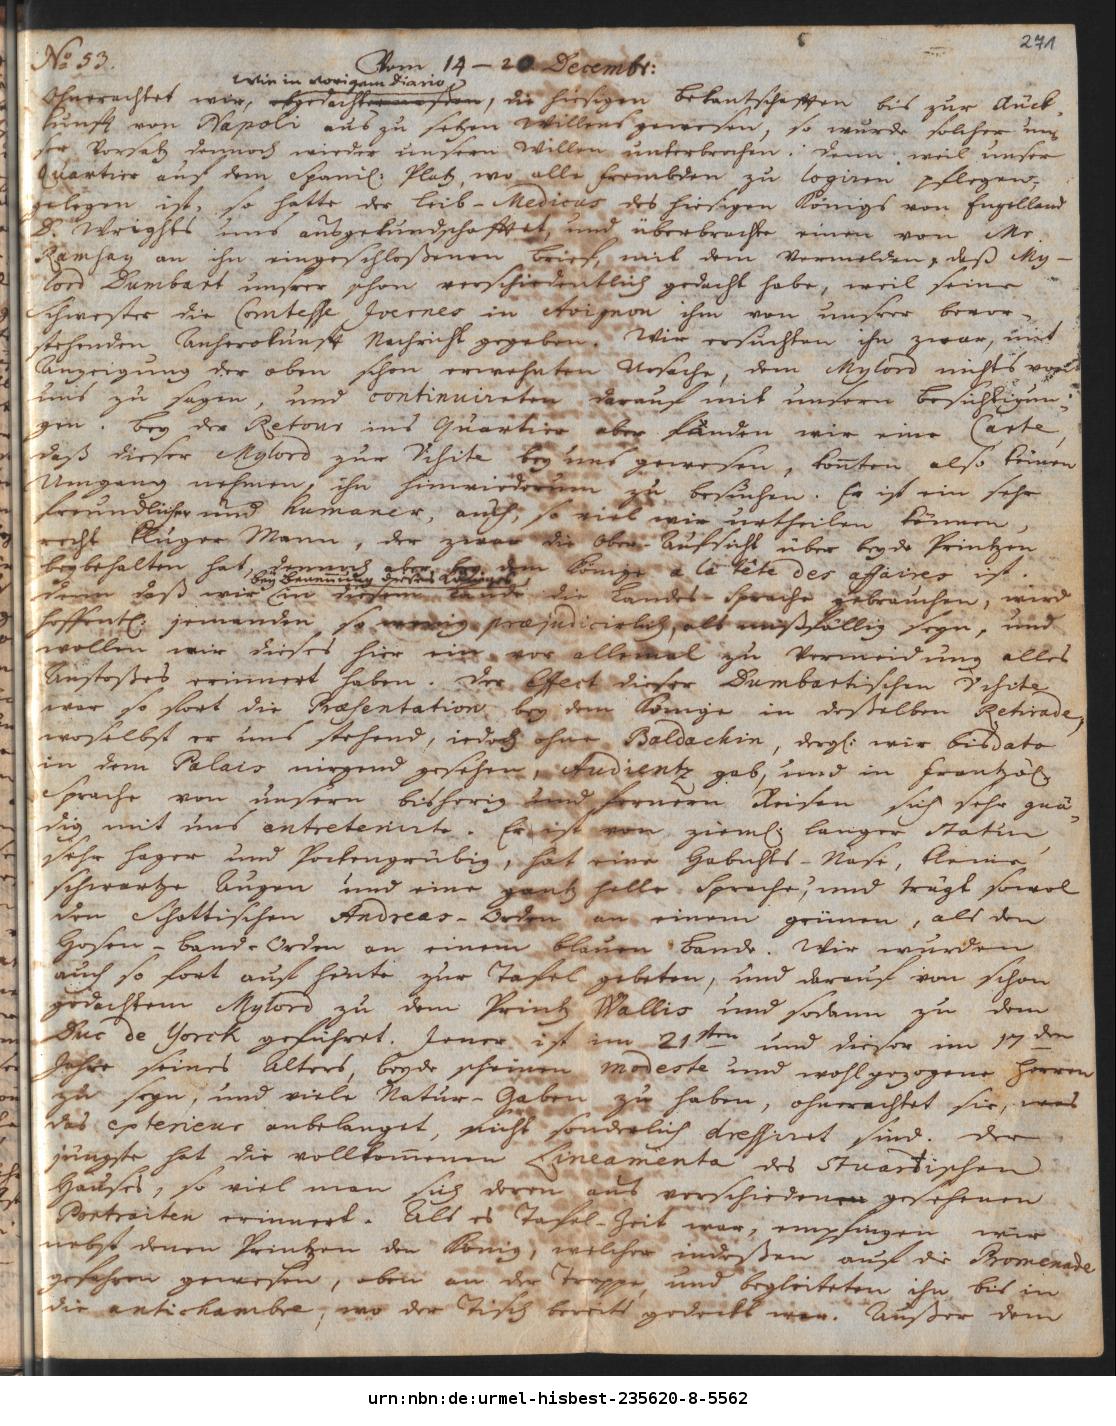 271
No 53.
Vom 14 – 20 Decembr:
wie in vorigem Diario
Ohnerachtet wir, die hiesigen Bekantschafften bis zur Rück-
kunfft von Napoli aus zu setzen Willens gewesen, so wurde solcher un-
ser Vorsatz dennoch wieder unsern Willen unterbrochen. Denn weil unser
Quartier auf dem Spanis: Platz, wo alle Frembden zu logiren pflegen,
gelegen ist, so hatte der Leib-Medicus des hiesigen Königs von Engelland
Dr Wrights uns ausgekundschafftet, und überbrachte einen von Mr.
Ramsay an ihn eingeschloßenen Brief, mit dem Vermelden, daß My-
lord Dumbart unsrer schon verschiedentlich gedacht habe, weil seine
Schwester die Comtesse Jvernes in Avignon ihm von unserer bevor-
stehenden Anherokunfft Nachricht gegeben. Wir ersuchten ihn zwar, mit
Anzeigung der oben schon erwehnten Ursache, dem Mylord nichts von
uns zu sagen, und continuireten darauf mit unsern Besichtigun-
gen. Bey der Retour ins Quartier aber fanden wir eine Carte,
daß dieser Mylord zur Visite bey uns gewesen, konten also keinen
Umgang nehmen, ihn hinwiederum zu besuchen. Er ist ein sehr
freundlicher und humaner, auch, so viel wir urtheilen können,
recht kluger Mann, der zwar die Ober-Aufsicht über beyde Printzen
beybehalten hat, dennoch aber bey dem Könige a la tête des affaires ist.
bey Benennung dieses Königes
Denn daß wir in diesem Lande die Landes-Sprache gebrauchen, wird
hoffentl: jemanden so wenig præjudicirlich, als mißfällig seyn, und
wollen wir dieses hier ein vor allemal zu Vermeidung alles
Anstoßes erinnert haben. Der Effect dieser Dumbartischen Visite
war so fort die Præsentation bey dem Könige in deßelben Retirade,
woselbst er uns stehend, iedoch ohne Baldachin, dergl: wir bisdato
in dem Palais nirgend gesehen, Audientz gab, und in Frantzös:
Sprache von unsern bisherig und fernern Reisen sich sehr gnä-
dig mit uns entretenirte. Er ist von zieml: langer Statur,
sehr hager und Pockengrübig, hat eine Habichts-Nase, kleine
schwartze Augen und eine gantz helle Sprache, und trägt sowol
den Schottischen Andreas-Orden an einem grünen, als den
Hosen-Band-Orden an einem blauen Bande. Wir wurden
auch so fort auf heute zur Tafel gebeten, und darauf von schon
gedachtem Mylord zu dem Printz Wallis und sodann zu dem
Duc de Yorck geführet. Jener ist im 21sten und dieser im 17den
Jahre seines Alters, beyde scheinen modeste und wohlgezogene Herren
zu seyn, und viele Natur-Gaben zu haben, ohnerachtet sie, was
das exterieur anbelanget, nicht sonderlich dressiret sind. Der
jüngste hat die vollkommenen Lineamenta des Stuartischen
Hauses, so viel man sich deren aus verschiedenen gesehenen
Portraiten erinnert. Als es Tafel-Zeit war, empfingen wir
nebst denen Printzen den König, welcher indeßen auf die Promenade
gefahren gewesen, oben an der Treppe, und begleiteten ihn bis in
die antichambre, wo der Tisch bereits gedeckt war. Außer dem
urn:nbn:de:urmel-hisbest-235620-8-5562